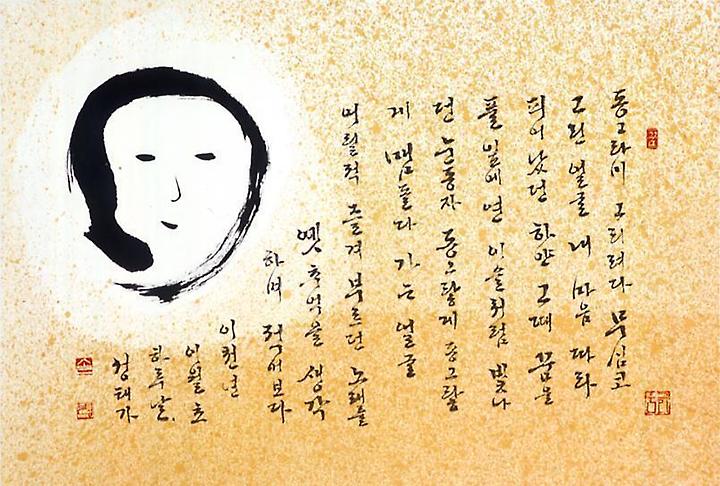 동그라미 그리려다 무심코
그린 얼굴 내 마음 따라
피어났던 하얀 그때 꿈을
풀잎에 연 이슬처럼 빛나
던 눈동자 동그랗게 동그랗
게 맴돌다 가는 얼굴
어릴적 즐겨 부르던 노래를
옛 추억을 생각
하며 적어보다
이천년
이월 초
하루날.